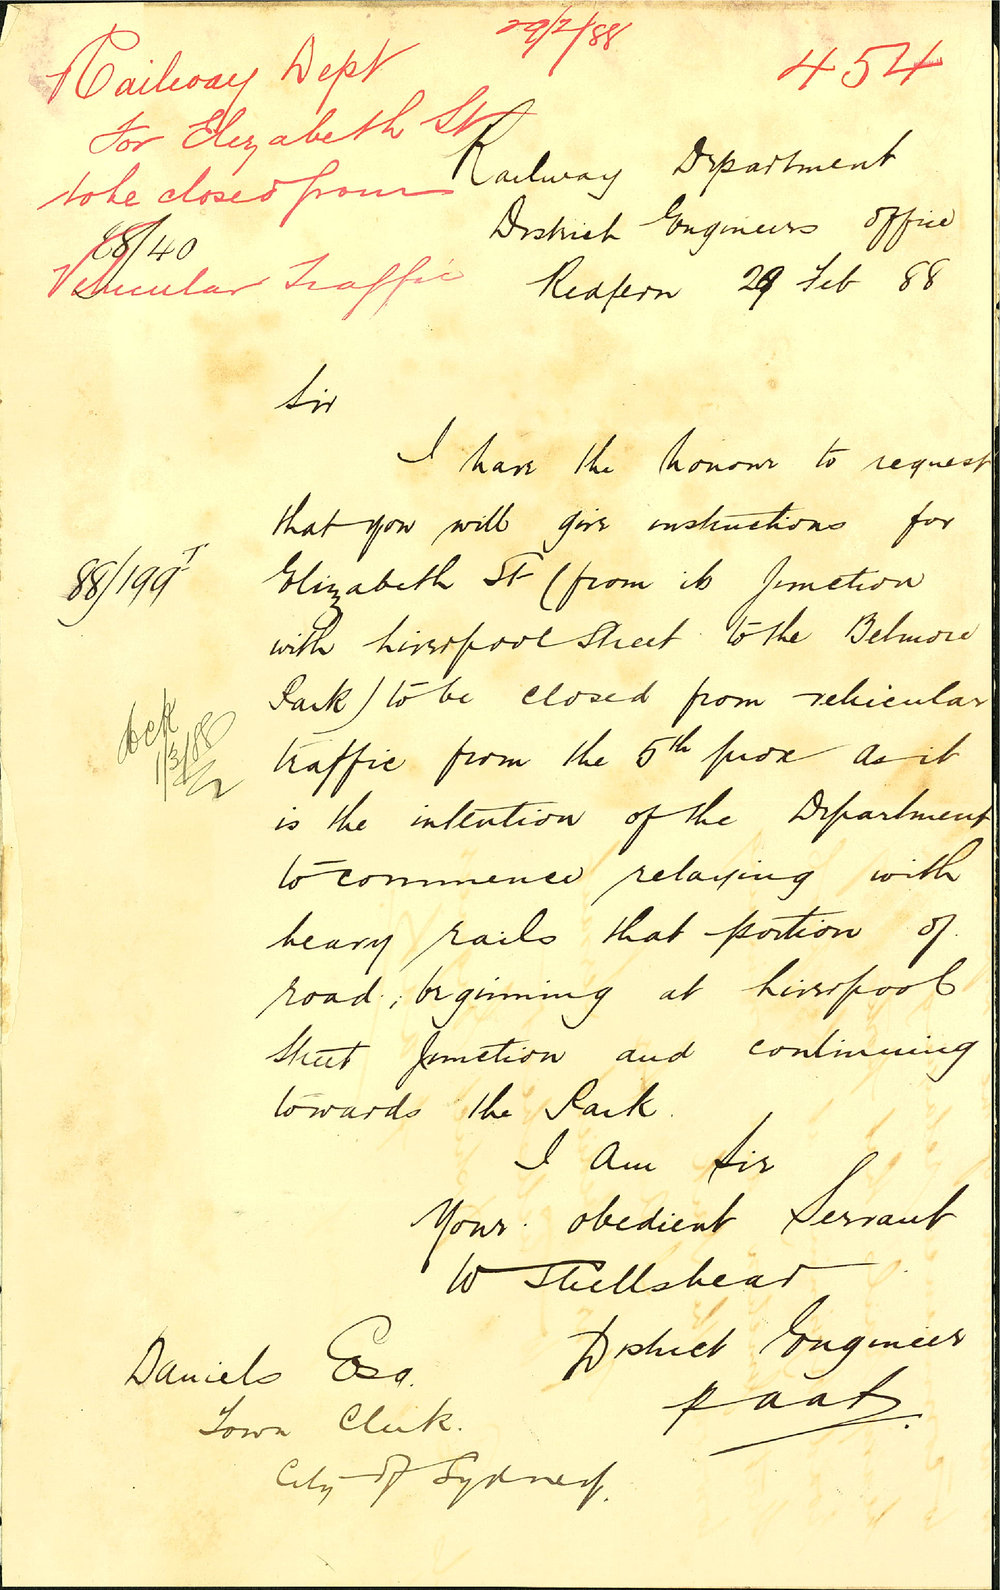 29/2/88
454
Railway Dept
For Elizabeth St
to be closed from
88/40
Vehicular Traffic
Railway Department
District Engineers office
Redfern 29 Feb 88
Sir
I have the honour to request
that you will give instructions for
Elizabeth St (from its Junction
with Liverpool Street to the Belmore
Park) to be closed from vehicular
traffic from the 5th prox as it
is the intention of the Department
to commence relaying with
heavy rails that portion of
road; beginning at Liverpool
Street Junction and continuing
towards the Park.
88/199T
ack
1/3/88
I Am Sir
Your obedient Servant
W Shellshear
District Engineer
Daniels Esq.
Town Clerk.
City of Sydney.